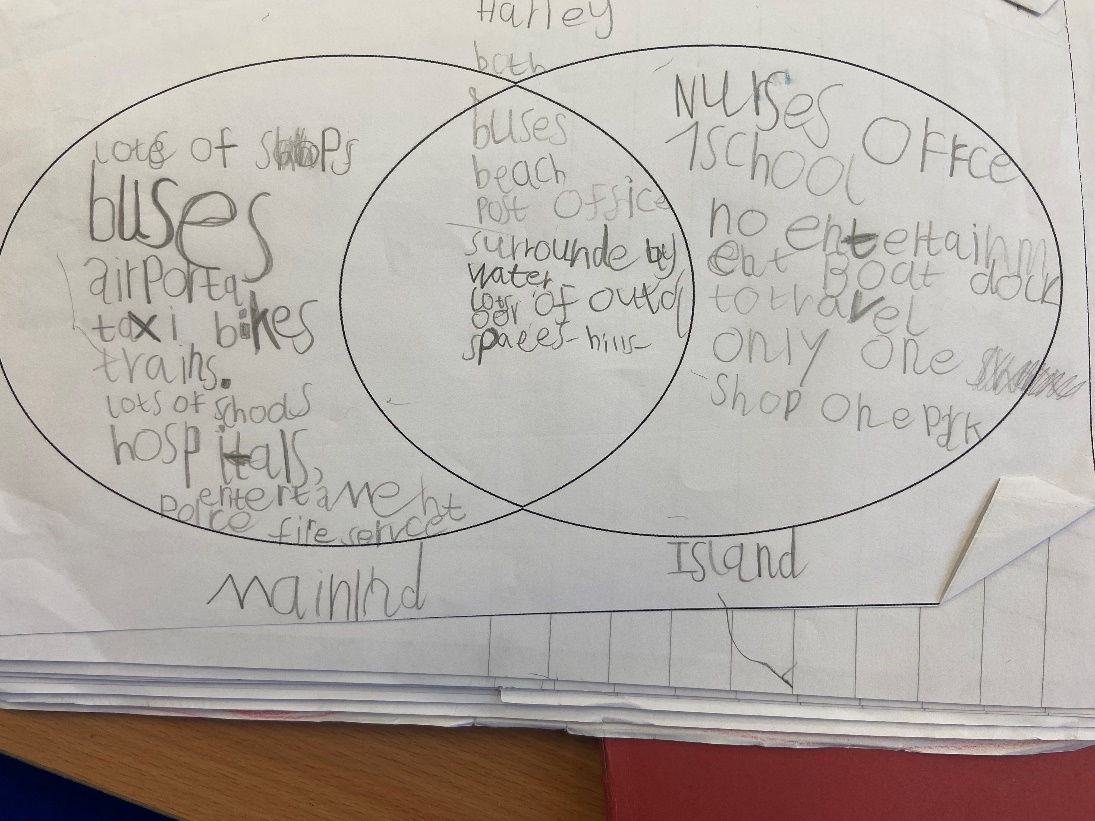 Harley
both
lots of shops
buses
airporta
taxi bikes
trains.
lots of schools
hospitals,
entertament
Police fire servcet
mainlnd
buses
beach
Post office
surrounde by
water
lots of outd
oor
spaces-hills-
Nurses Offfce
1school
no entertainm
ent Boat dock
to travel
only one
shop one park
Island